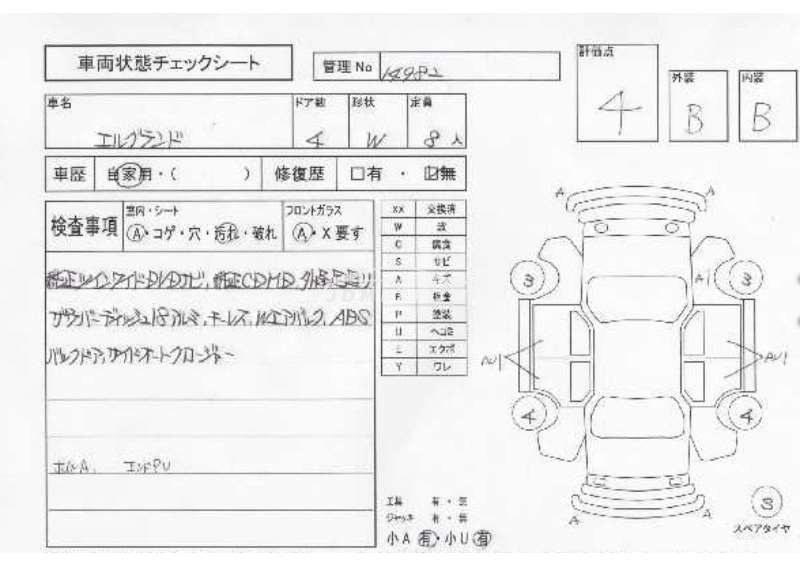 車両状態チェックシート
管理 No 14982
評価点 4
外装 B
内装 B
車名 エルグランド
ドア数 4
形状 W
定員 8 人
車歴 自家用・( )
修復歴 □有 ・ ☑無
検査事項
室内・シート
A・コゲ・穴・汚れ・破れ
フロントガラス
A・X 要す
純正ツインワイドDVDナビ, 純正CDMD
アルミ, キーレス, Wエアバック, ABS
バックドア, サイドオートクロージャー
エンドPU
XX 交換済
W 波
C 腐食
S サビ
A キズ
B 板金
P 塗装
U ヘコミ
E エクボ
Y ワレ
A
A
3
A1
3
AU1
AU1
4
4
A
A
3
スペアタイヤ
工具 有・無
ジャッキ 有・無
小A 有・小U 有